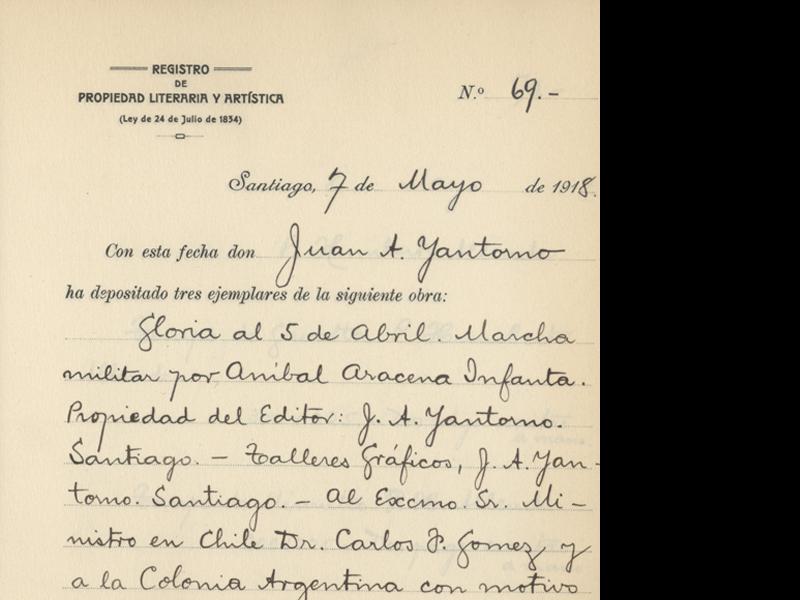 REGISTRO
DE
PROPIEDAD LITERARIA Y ARTÍSTICA
(Ley de 24 de Julio de 1834)
N.º 69.-
Santiago, 7 de Mayo de 1918.
Con esta fecha don Juan A. Yantorno
ha depositado tres ejemplares de la siguiente obra:
Gloria al 5 de Abril. Marcha
militar por Aníbal Aracena Infanta.
Propiedad del Editor: J. A. Yantorno.
Santiago. – Talleres Gráficos, J. A. Yan-
torno. Santiago. – Al Excmo. Sr. Mi-
nistro en Chile Dr. Carlos F. Gomez y
a la Colonia Argentina con motivo